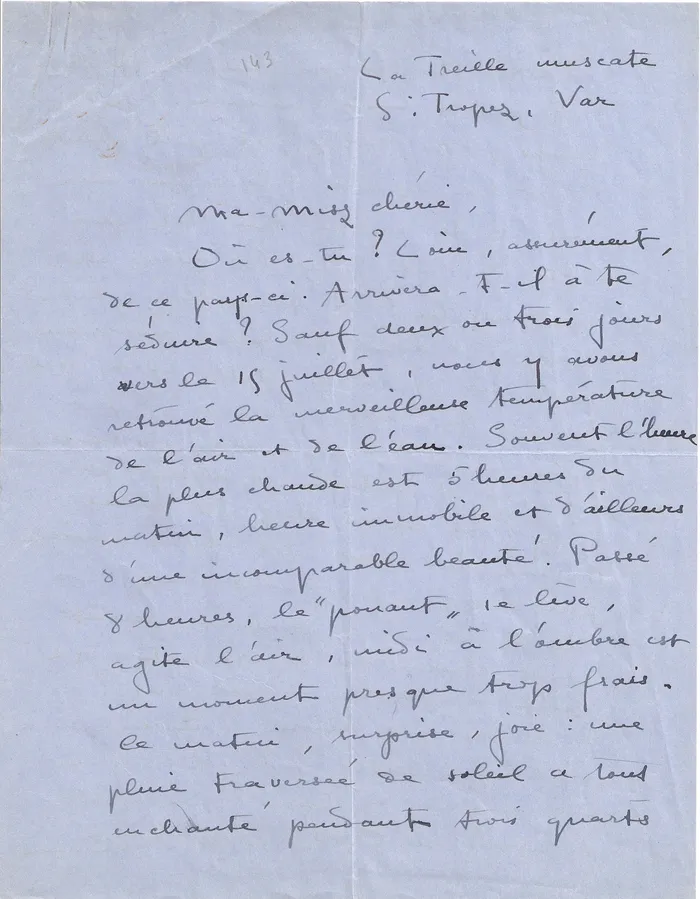 143
La Treille muscate
St Tropez, Var
Ma-missz chérie,
Où es-tu ? Loin, assurément,
de ce pays-ci. Arrivera-t-il à te
séduire ? Sauf deux ou trois jours
vers le 15 juillet, nous y avons
retrouvé la merveilleuse température
de l'air et de l'eau. Souvent l'heure
la plus chaude est 5 heures du
matin, heure immobile et d'ailleurs
d'une incomparable beauté. Passé
8 heures, le "ponant" se lève,
agite l'air, midi à l'ombre est
un moment presque trop frais.
Ce matin, surprise, joie : une
pluie traversée de soleil a tout
enchanté pendant trois quarts